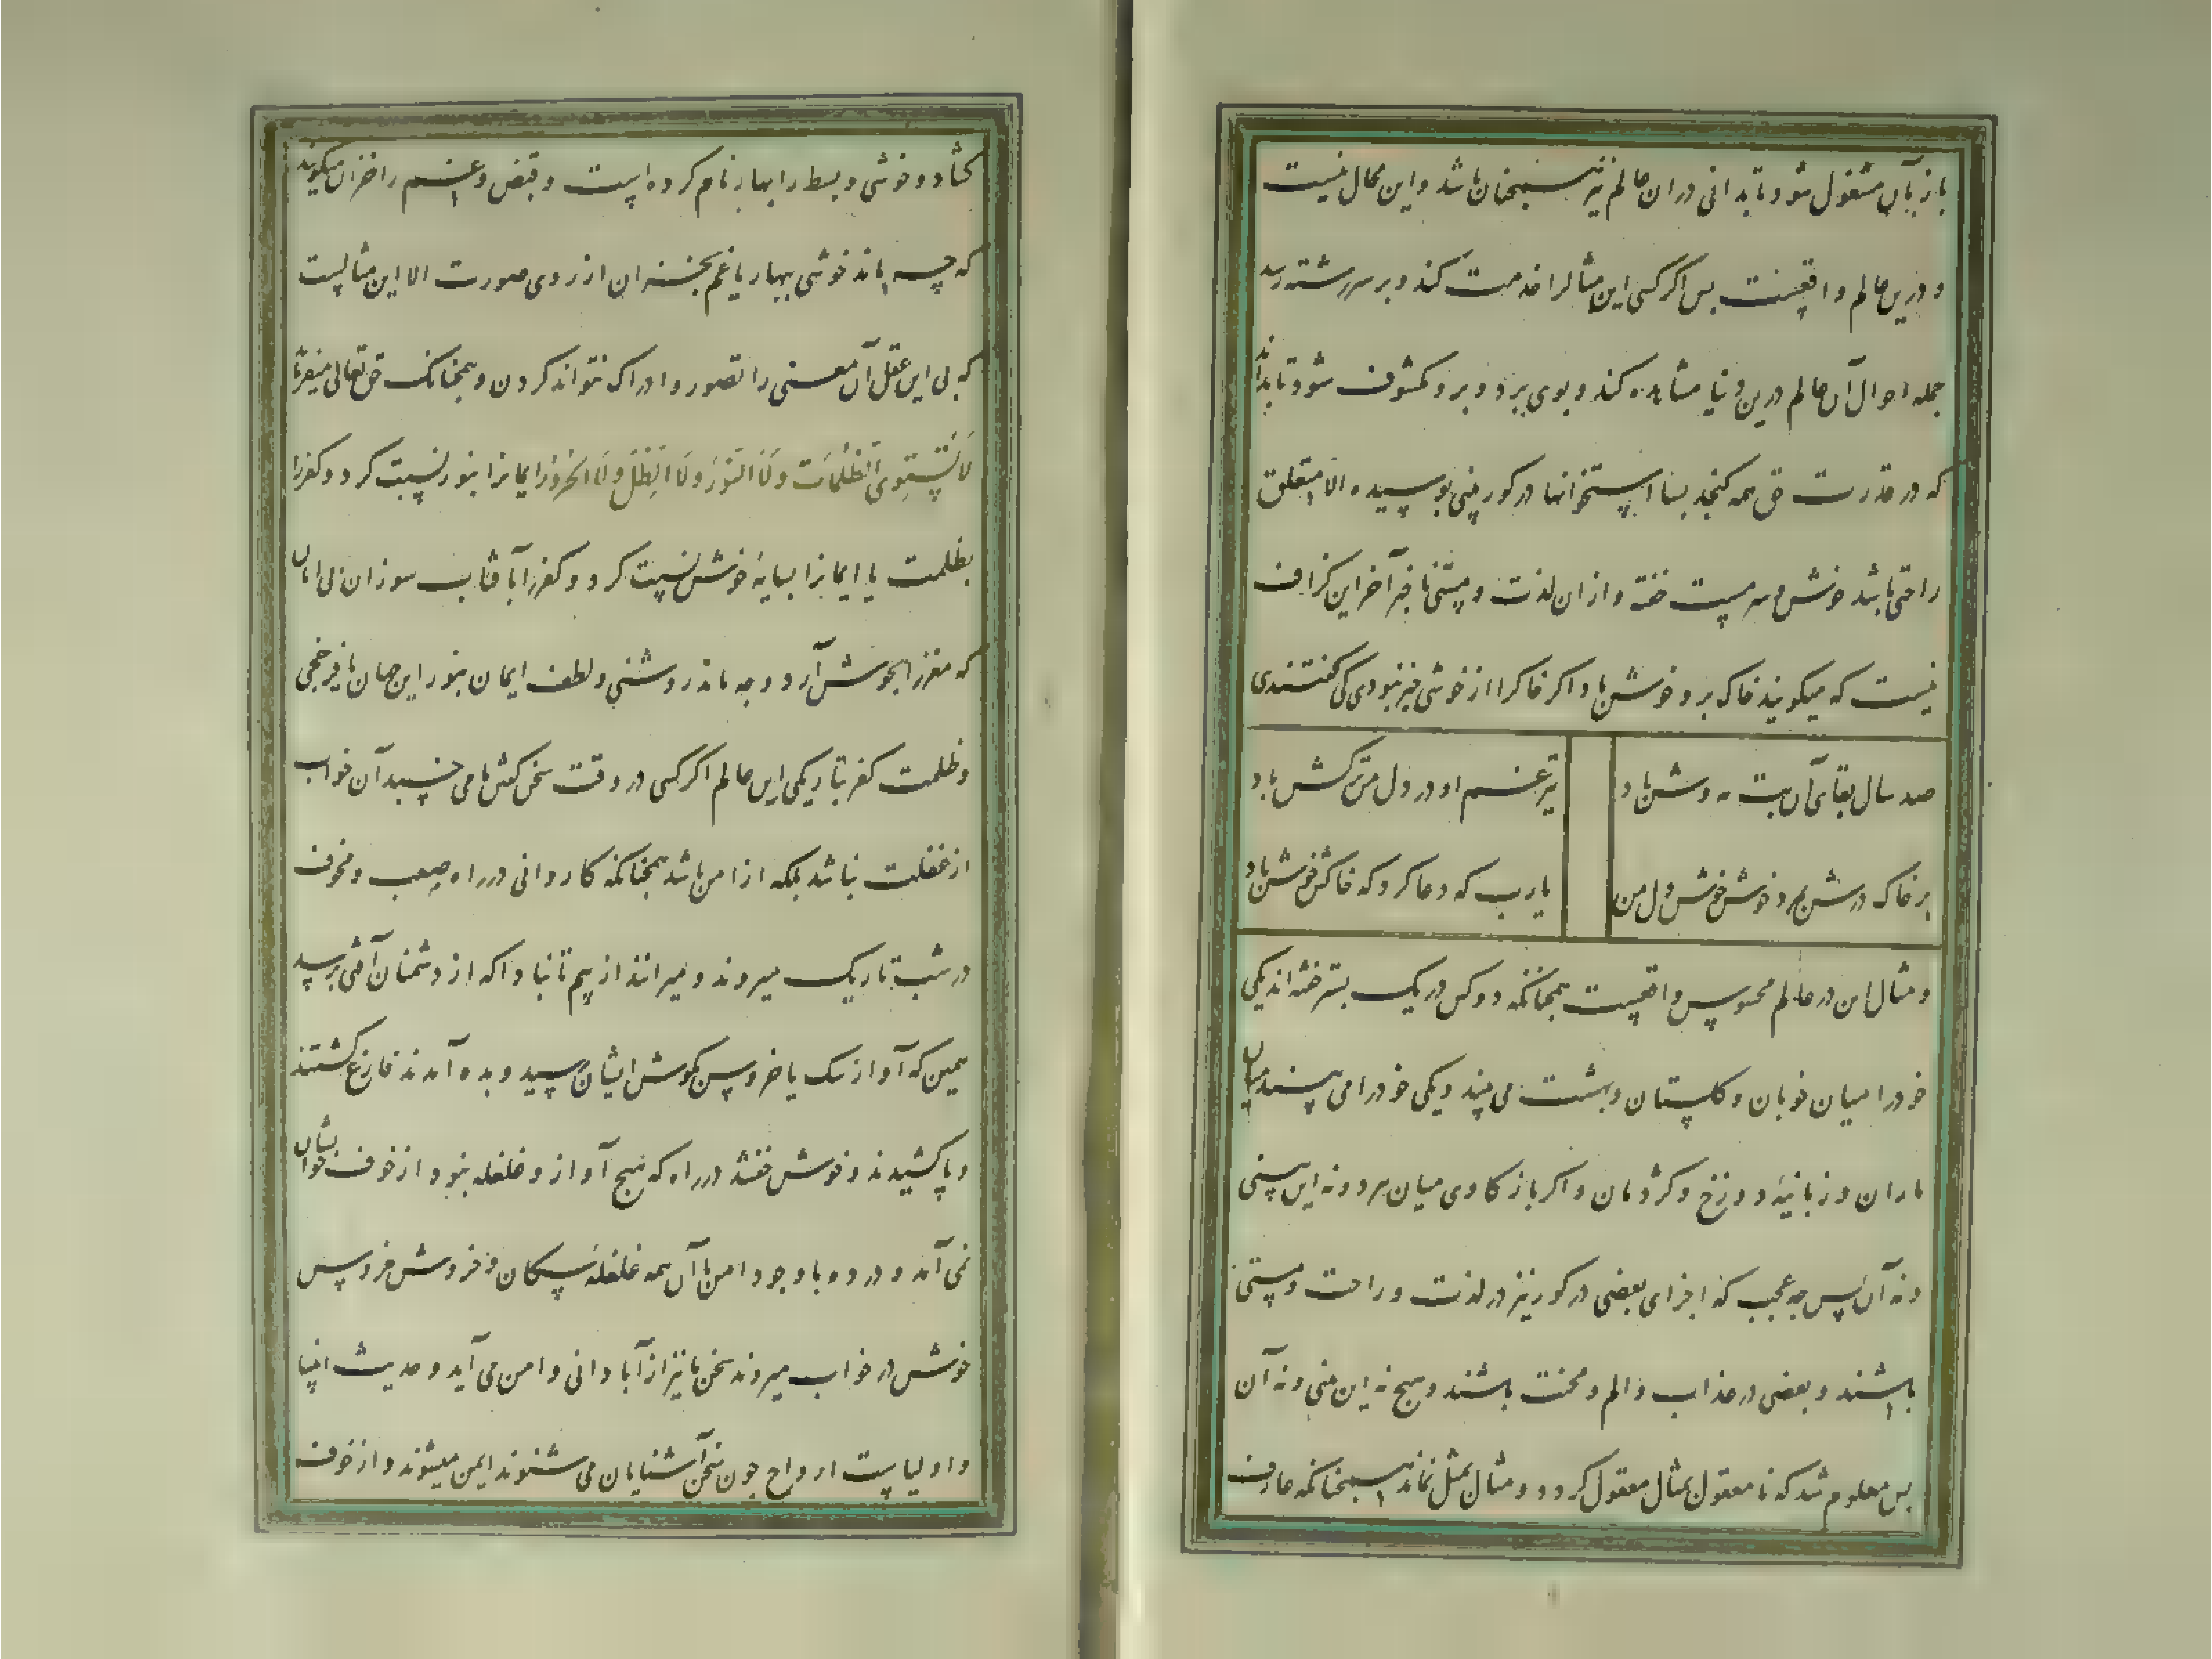 باز بآن مشغول شود تا بدانی در ان عالم نیز همچنان باشد و این محال نیست
و درین عالم واقعست پس اکر کسی این مثالرا خدمت کند و بر سر رشته رسد
جمله احوال آن عالم درین دنیا مشاهده کند و بوی برد و برو مکشوف شود تا بداند
که در قدرت حق همه کنجد بسا استخوانها در کور بینی بوسیده الا متعلق
راحتی باشد خوش و سرمست خفته و ازان لذت و مستی با خبر آخر این کزاف
نیست که میکویند خاک برو خوش باد اکر خاکرا از خوشی خبر نبودی کی کفتندی
صد سال بقای آن بت مه وش باد
تیر غم او در دل من ترکش باد
بر خاک درش بمرد خوش خوش دل من
یا رب که دعا کرد که خاکش خوش باد
و مثال این در عالم محسوس واقعست همچنانکه دو کس در یک بستر خفته اند یکی
خود را میان خوبان و کلستان و بهشت می بیند و یکی خود را می بیند میان
ماران و زبانیهٔ دوزخ و کژدمان و اکر باز کاوی میان هر دو نه این بینی
و نه آن پس چه عجب که اجزای بعضی در کور نیز در لذت و راحت و مستی
باشند و بعضی در عذاب و الم و محنت باشند و هیچ نه این بینی و نه آن
پس معلوم شد که نامعقول بمثال معقول کردد و مثال بمثل نماند همچنانکه عارف
کشاد و خوشی و بسط را بهار نام کرده است و قبض و غم را خزان میکوید
که چه ماند خوشی ببهار یا غم بخزان از روی صورت الا این مثالیست
که بی این عقل آن معنی را تصور و ادراک نتواند کردن و همچنانک حق تعالی میفرماید
لا تستوی الظلمات ولا النور ولا الظل ولا الحرور ایمانرا بنور نسبت کرد و کفررا
بظلمت یا ایمانرا بسایهٔ خوش نسبت کرد و کفررا بآفتاب سوزان بی امان
که مغزرا بجوش آرد و چه ماند روشنی و لطف ایمان بنور این جهان یا فرخجی
و ظلمت کفر بتاریکی این عالم اکر کسی در وقت سخن کفتن ما می خسبد آن خواب
از غفلت نباشد بلکه از امن باشد همچنانکه کاروانی در راه صعب و مخوف
در شب تاریک میروند و میرانند از بیم تا نباداکه از دشمنان آفتی برسد
همین که آواز سک یا خروس بکوش ایشان رسید و بده آمدند فارغ کشتند
و پا کشیدند و خوش خفتند در راه که هیچ آواز و غلغله نبود از خوف خوابشان
نمی آمد و در ده با وجود امن با آن همه غلغلهٔ سکان و خروش خروس
خوش در خواب میروند سخن ما نیز از آبادانی و امن می آید و حدیث انبیا
و اولیاست ارواح چون سخن آشنایان می شنوند ایمن میشوند و از خوف